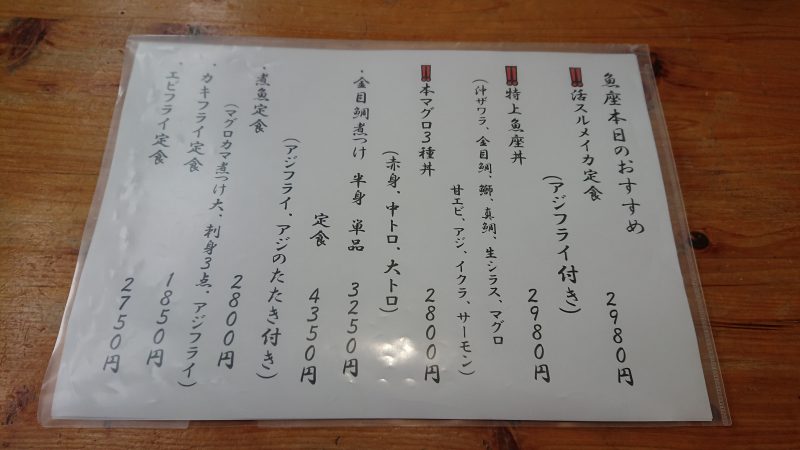 魚座本日のおすすめ
‼活スルメイカ定食 2980円
(アジフライ付き)
‼特上魚座丼 2980円
(沖ザワラ、金目鯛、鰤、真鯛、生シラス、マグロ
甘エビ、アジ、イクラ、サーモン)
‼本マグロ3種丼 2800円
(赤身、中トロ、大トロ)
・金目鯛煮つけ 半身 単品 3250円
定食 4350円
(アジフライ、アジのたたき付き)
・煮魚定食 2800円
(マグロカマ煮つけ大、刺身3点、アジフライ)
・カキフライ定食 1850円
・エビフライ定食 2750円